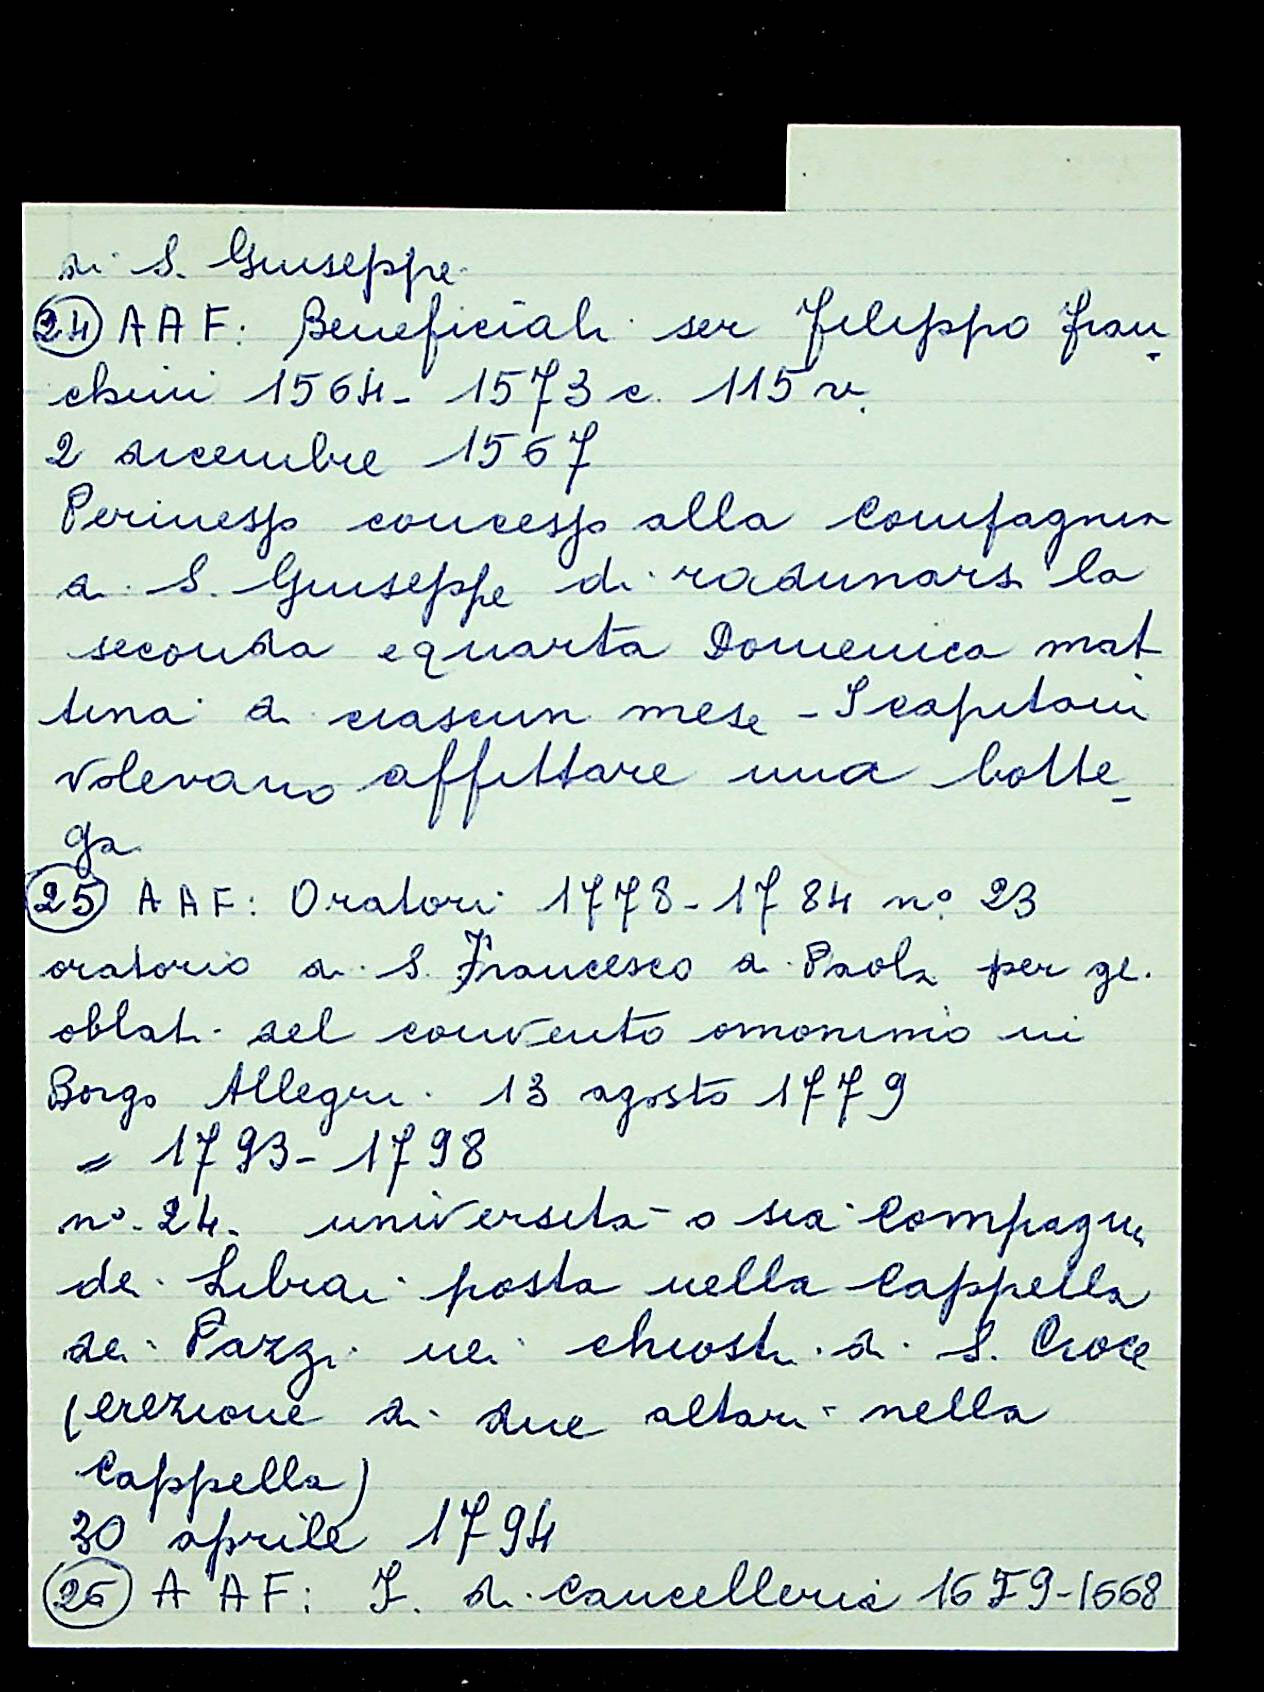 di S. Giuseppe
24 AAF: Beneficiali ser Filippo Fran-
chini 1564-1573 c. 115 v.
2 dicembre 1567
Permesso concesso alla Compagnia
di S. Giuseppe di radunarsi la
seconda e quarta Domenica mat
tina di ciascun mese - I capitani
volevano affittare una botte-
ga
25 AAF: Oratori 1778-1784 n.° 23
oratorio di S. Francesco di Paola per gl.
oblati del convento omonimo in
Borgo Allegri. 13 agosto 1779
= 1793-1798
n.° 24. università o sia Compagni
dei Librai posta nella Cappella
dei Pazzi nei chiostri di S. Croce
(erezione di due altari nella
Cappella)
30 aprile 1794
26 AAF: F. di Cancelleria